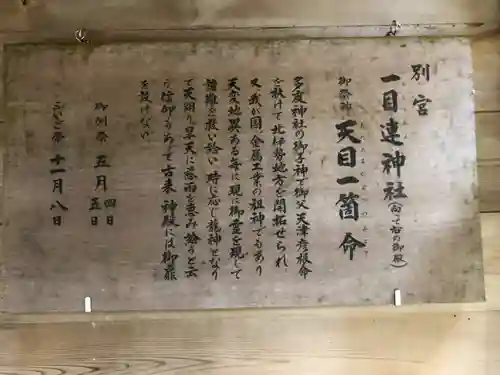 別宮
一目連神社(向って右の御殿)
御祭神 天目一箇命
多度神社の御子神で御父天津彦根命
を扶けて北伊勢地方を開拓せられ、
又、我が国金属工業の祖神でもあり
天変地異ある毎に現に御霊を現して
諸難を救い給い、時に応じ龍神となり
て天翔り旱天に慈雨を恵み給うと云
う信仰もあって古来、神殿には御扉
を設けない
御例祭 五月 四日 五日
ふいご祭 十一月八日